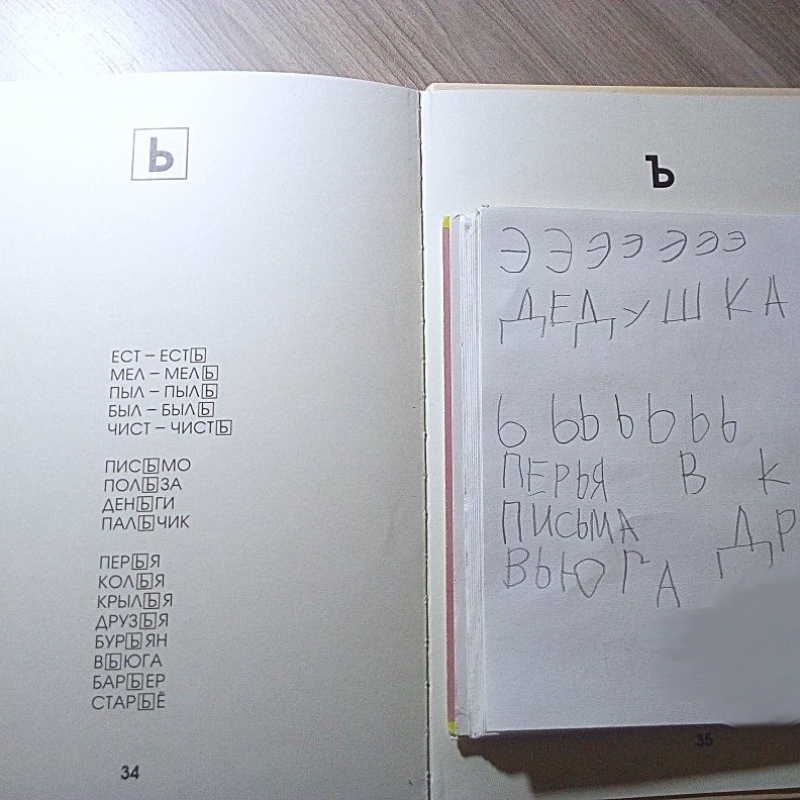 Ь
ЕСТ – ЕСТЬ
МЕЛ – МЕЛЬ
ПЫЛ – ПЫЛЬ
БЫЛ – БЫЛЬ
ЧИСТ – ЧИСТЬ
ПИСЬМО
ПОЛЬЗА
ДЕНЬГИ
ПАЛЬЧИК
ПЕРЬЯ
КОЛЬЯ
КРЫЛЬЯ
ДРУЗЬЯ
БУРЬЯН
ВЬЮГА
БАРЬЕР
СТАРЬЁ
34
Ъ
Э Э Э Э Э Э Э
ДЕДУШКА
Ь Ь Ь Ь Ь Ь Ь
ПЕРЬЯ В К
ПИСЬМА ДР
ВЬЮГА
35